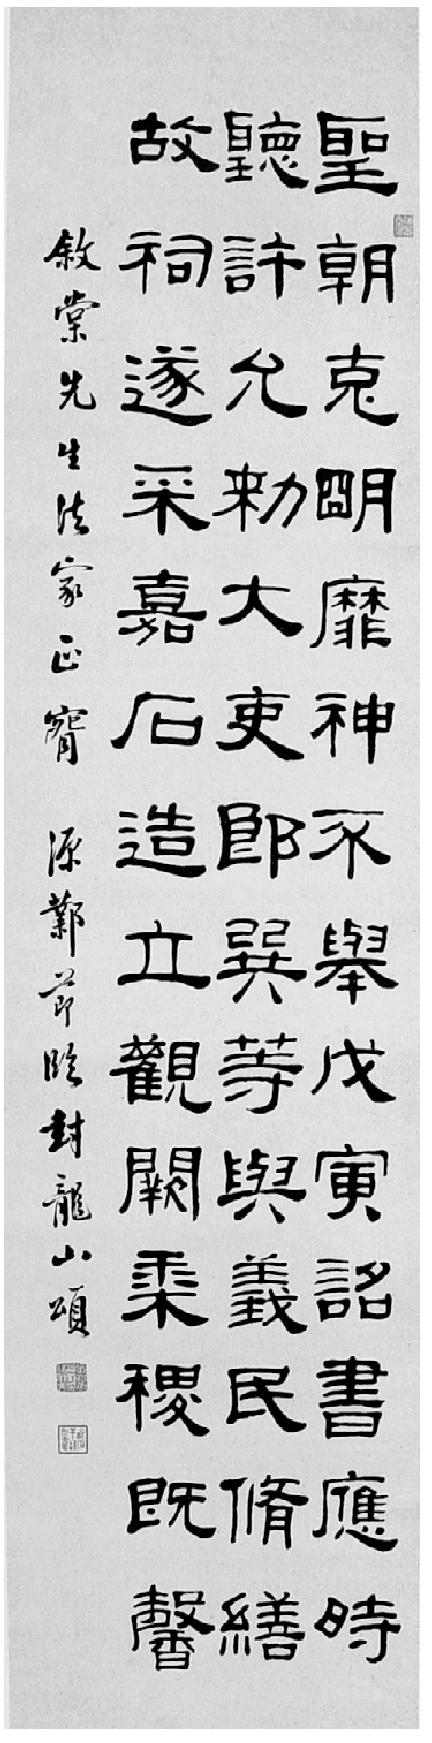 聖朝克明靡神不舉戊寅詔書應時
聽許允勑大吏郎巽等與義民脩繕
故祠遂采嘉石造立觀闕黍稷既馨
敘棠先生法家正臂 源鄴節臨封龍山頌